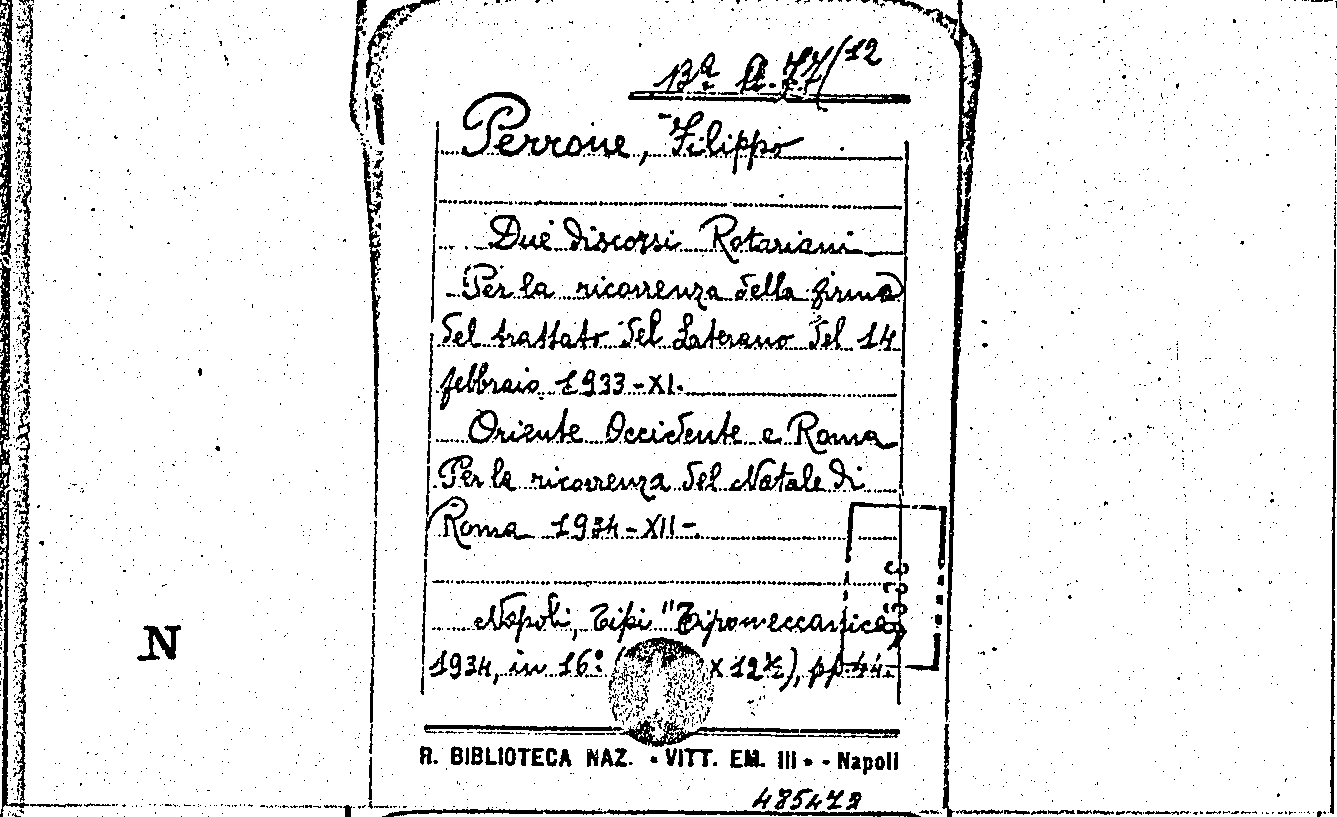 Bª A. 77/12
Perrone, Filippo
Due discorsi Rotariani
Per la ricorrenza della firma
del trattato del Laterano del 14
febbraio 1933-XI.
Oriente Occidente e Roma
Per la ricorrenza del Natale di
Roma 1934-XII-.
Napoli, Tipi "Tipomeccanica,
1934, in 16º ( x 12½), pp. 44.
N
R. BIBLIOTECA NAZ. - VITT. EM. III - - Napoli
485472